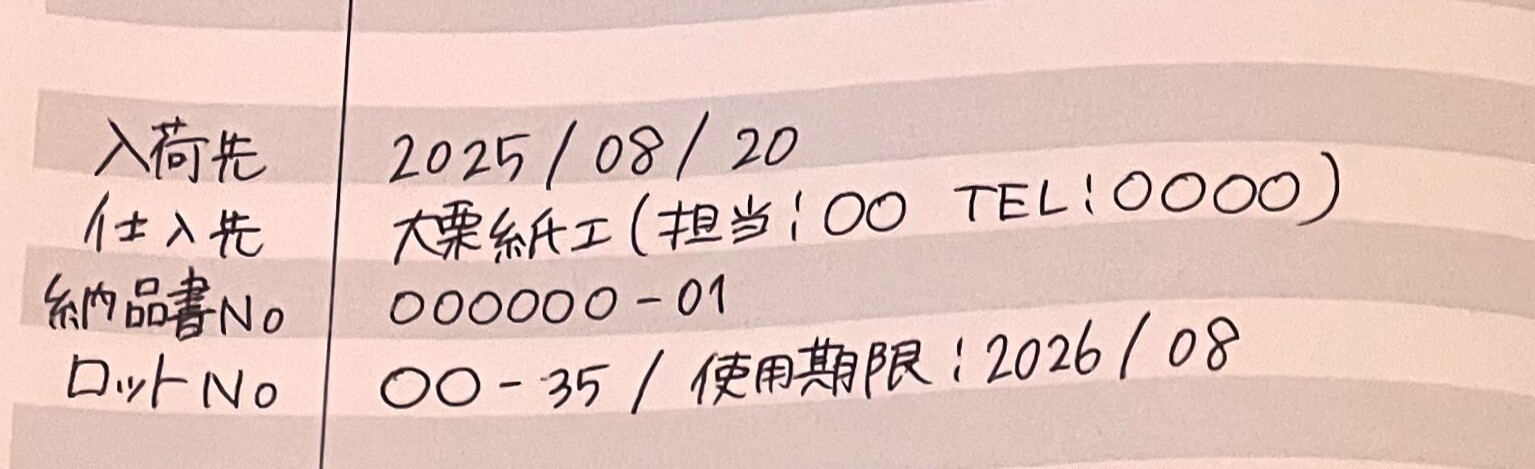 入荷先 2025/08/20
仕入先 大栗紙工(担当:00 TEL:0000)
納品書No 000000-01
ロットNo 00-35 / 使用期限:2026/08